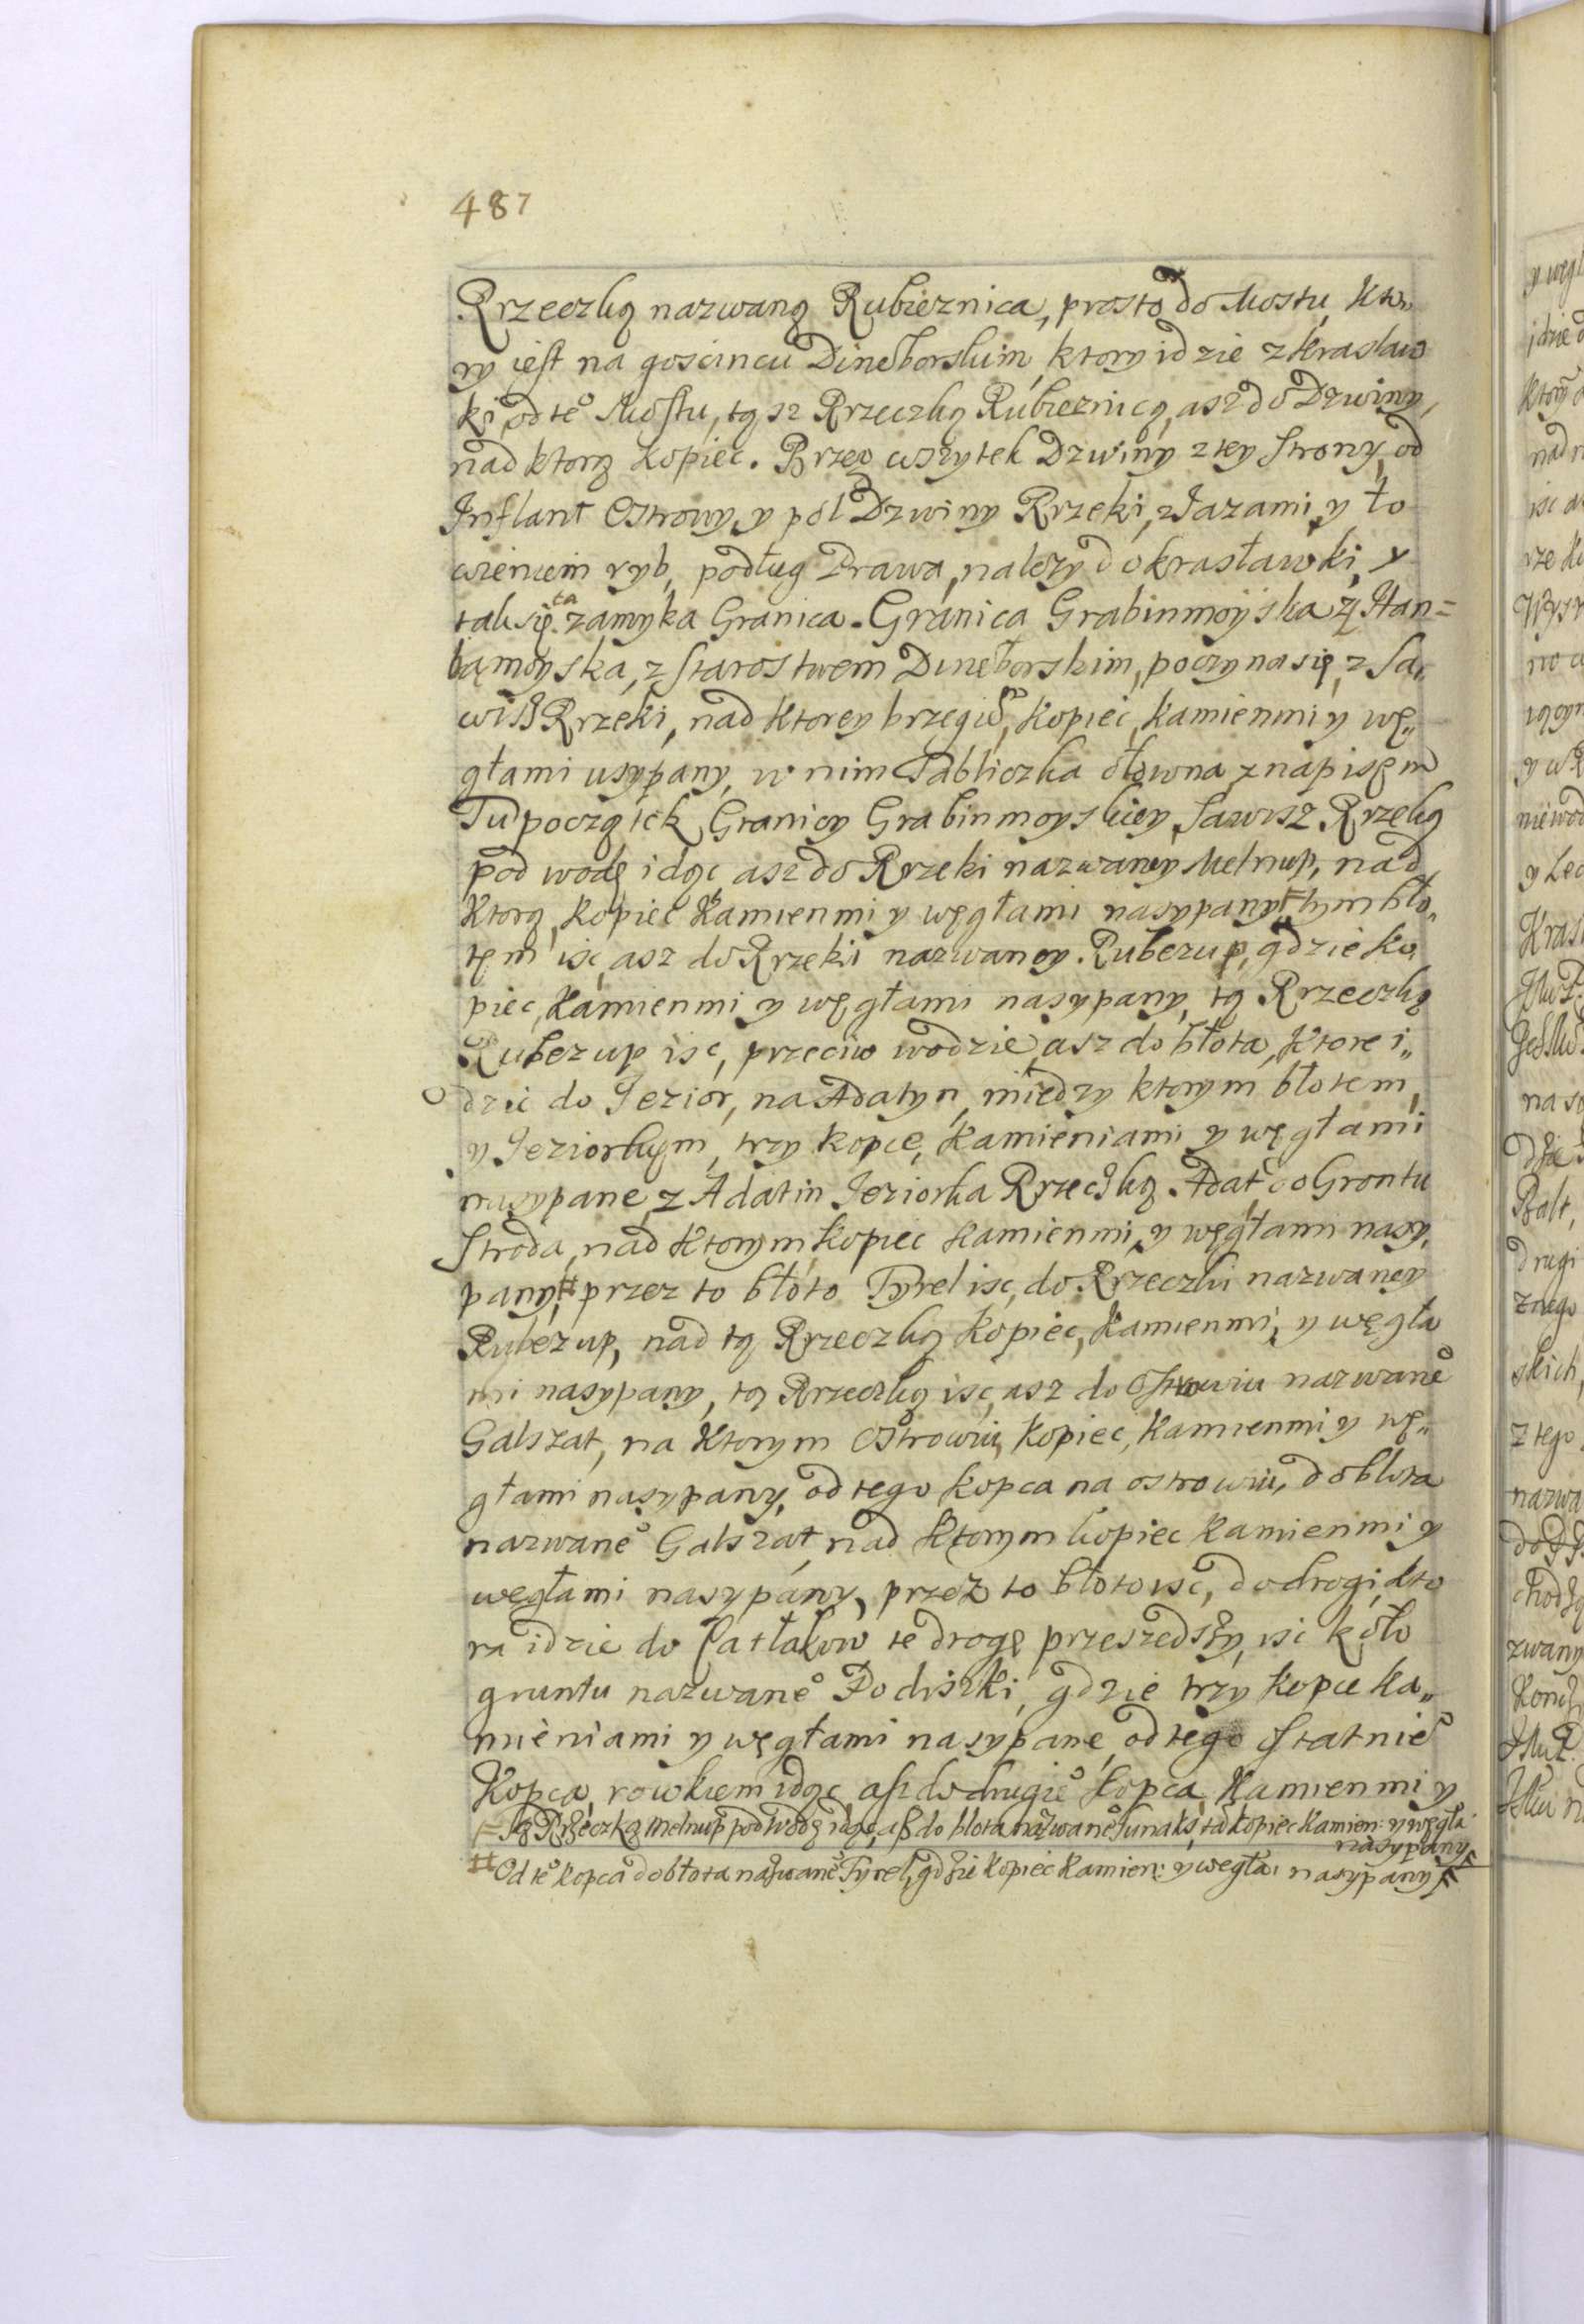 487
Rrzeczką nazwaną Rubieznica, prosto do Mostu, kto„
ry iest na goscincu Dineborskim, ktory idzie z Krasław
ki, od te° Mostu, tąsz Rrzeczką Rubieznicą, asz do Dzwiny,
nad ktorą kopiec. Brzeg wszytek Dzwiny z tey strony, od
Inflant Ostrowy, y pół Dzwiny Rrzeki, z Jazami, y ło
wieniem ryb, podług Prawa, nalezy do krasławki, y
tak się ta zamyka Granica. Granica Grabinmoyska z Han=
bąmoyska, z starostwem Dineborskim, poczyna się, z Sa„
wisz Rrzeki, nad ktorey brzegiem, kopiec, kamienmi y wę„
głami usypany, w nim Tabliczka ołowna z napisem
Tu początek Granicy Grabinmoyskiey, Sawisz Rrzeką
pod wodę idąc, asz do Rrzeki nazwaney Melnup, nad
ktorą, kopiec kamienmi y węgłami nasypany tym bło„
tem isc, asz do Rrzeki nazwaney Rubezup, gdzie ko
piec, kamienmi y węgłami nasypany, tą Rrzeczką
Rubezup isc, przeciw wodzie, asz do błota, ktore i„
dzie do Jezior, na Adatyn, miedzy ktorym błotem,
y Jeziorkiem, trzy kopce, kamieniami y węgłami
nasypane, z Adatin Jeziorka Rrzeczką Adat, do Grontu
Stroda, nad ktorym kopiec kamienmi, y węgłami nasy„
pany, # przez to błoto Tyrel isc, do Rrzeczki nazwaney
Rubezup, nad tą Rrzeczką kopiec, kamienmi, y węgła
mi nasypany, tą Rrzeczką isc, asz do Ostrowiu nazwane°
Galszat, na ktorym Ostrowiu, kopiec, kamienmi y wę„
głami nasypany, od tego kopca na ostrowiu, do błota
nazwane° Galszat, nad ktorym kopiec kamienmi y
węgłami nasypány, przez to błoto isc, do drogi, kto
ra idzie do Łatłakow te drogę przeszedszy, isc koło
gruntu nazwane° Podiszki, gdzie trzy kopce ka„
mieniami y węgłami nasypane, od tego statnie°
Kopca, rowkiem idąc, asz do drugie° kopca, kamienmi y
= Tą Rrzeczką Melnup pod wodę idąc, asz do błota nazwane° Sunaks, tã kopiec kamien: y węgła:
nasypany
# Od te° kopca do błota nazwane° Tyrel, gdzie kopiec kamien: y węgła: nasypany